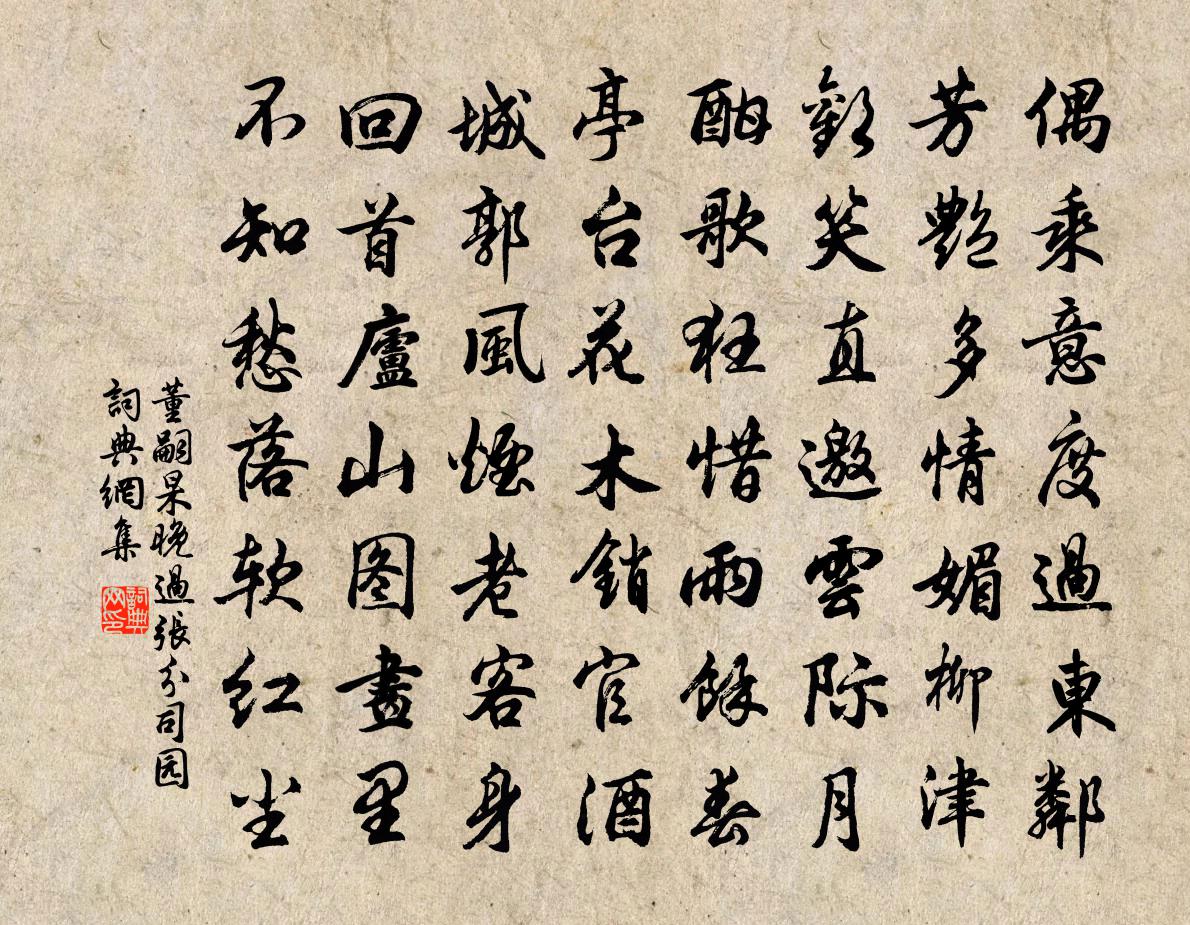 偶乘意度過東鄰
芳艷多情媚柳津
歡笑直邀雲际月
酣歌狂惜雨餘春
亭台花木銷官酒
城郭風煙老客身
回首廬山图畫里
不知愁落软红尘
董嗣杲晚過張分司园
詞典網集
詞典网印